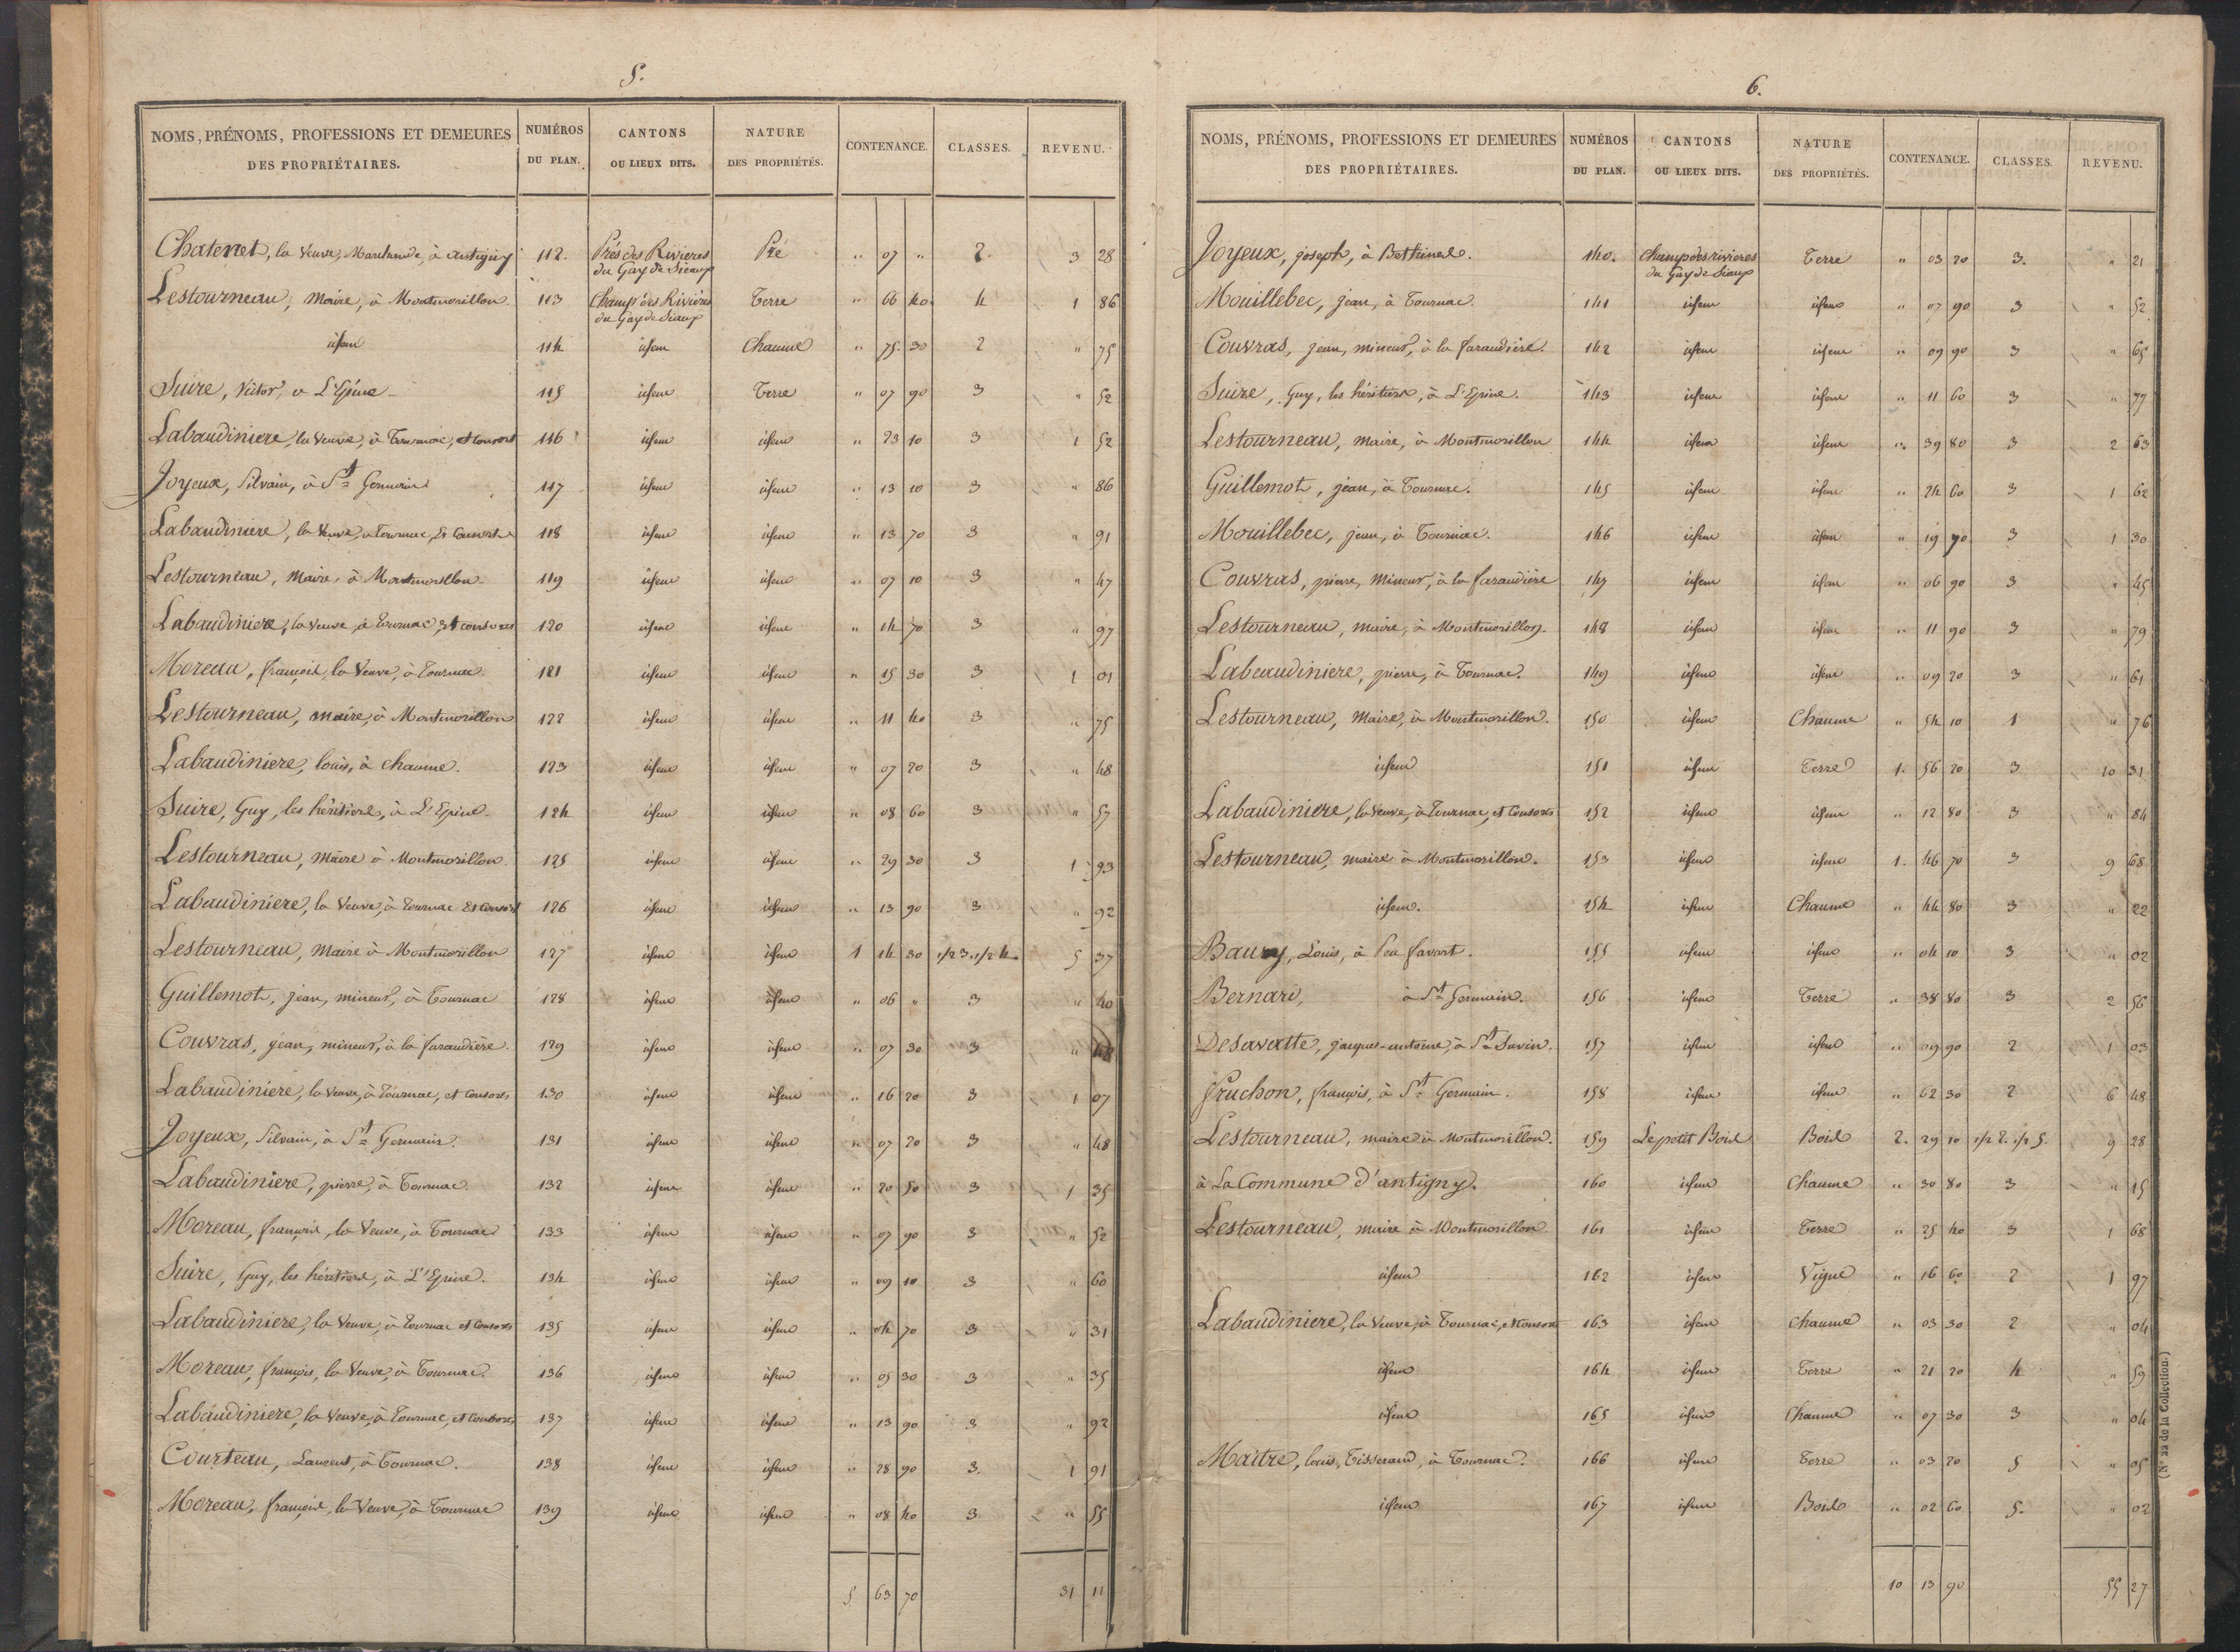 5.
NOMS, PRÉNOMS, PROFESSIONS ET DEMEURES DES PROPRIÉTAIRES. NUMÉROS DU PLAN. CANTONS OU LIEUX DITS. NATURE DES PROPRIÉTÉS. CONTENANCE. CLASSES. REVENU.
Chatenet, la Veuve, Marchande, à antigny 112. Prés des Rivieres du Gay de Sieaux Pré " 07 " 2. 3 28
Lestourneau, Maire, à Montmorillon. 113 Champ des Rivières du Gay de Sieaux Terre " 66 40 4 1 86
idem 114 idem Chaume " 75 30 2 " 75
Suire, Victor, à L'Epine 115 idem Terre " 07 90 3 " 52
Labaudiniere, la Veuve, à Tournac, et Consorts 116 idem idem " 23 10 3 1 52
Joyeux, Silvain, à St Germain 117 idem idem " 13 10 3 " 86
Labaudiniere, la Veuve, à Tournac, Et Consorts 118 idem idem " 13 70 3 " 91
Lestourneau, Maire, à Montmorillon. 119 idem idem " 07 10 3 " 47
Labaudiniere, la Veuve, à Tournac, et consorts 120 idem idem " 14 70 3 " 97
Moreau, françois, la Veuve, à Tournac. 121 idem idem " 15 30 3 1 01
Lestourneau, maire, à Montmorillon 122 idem idem " 11 40 3 " 75
Labaudiniere, louis, à chaume. 123 idem idem " 07 20 3 " 48
Suire, Guy, les héritiers, à L'Epine. 124 idem idem " 08 60 3 " 57
Lestourneau, maire à Montmorillon. 125 idem idem " 29 30 3 1 93
Labaudiniere, la Veuve, à Tournac Et Consorts 126 idem idem " 13 90 3 " 92
Lestourneau, Maire à Montmorillon 127 idem idem 1 14 30 1/2 3. 1/2 4. 5 37
Guillemot, jean, mineur, à Tournac 128 idem idem " 06 " 3 " 40
Couvras, jean, mineur, à la faraudière. 129 idem idem " 07 30 3 " 48
Labaudiniere, la Veuve, à Tournac, et Consorts 130 idem idem " 16 20 3 1 07
Joyeux, Silvain, à St Germain. 131 idem idem " 07 20 3 " 48
Labaudiniere, pierre, à Tournac. 132 idem idem " 20 50 3 1 35
Moreau, françois, la Veuve, à Tournac 133 idem idem " 07 90 3 " 52
Suire, Guy, les héritiers, à L'Epine. 134 idem idem " 09 10 3 " 60
Labaudiniere, la Veuve, à Tournac et Consorts 135 idem idem " 04 70 3 " 31
Moreau, françois, la Veuve, à Tournac. 136 idem idem " 05 30 3 " 35
Labaudiniere, la Veuve, à Tournac, et Consorts 137 idem idem " 13 90 3 " 92
Courteau, Laurent, à Tournac. 138 idem idem " 28 90 3. 1 91
Moreau, françois, la Veuve, à Tournac 139 idem idem " 08 40 3. " 55
5 63 70 31 11
6.
NOMS, PRÉNOMS, PROFESSIONS ET DEMEURES DES PROPRIÉTAIRES. NUMÉROS DU PLAN. CANTONS OU LIEUX DITS. NATURE DES PROPRIÉTÉS. CONTENANCE. CLASSES. REVENU.
Joyeux, joseph, à Bethines. 140. Champ des rivieres du Gay de Sieaux Terre " 03 20 3. " 21
Mouillebec, jean, à Tournac. 141 idem idem " 07 90 3 " 52
Couvras, jean, mineur, à la faraudière. 142 idem idem " 09 90 3 " 65
Suire, Guy, les héritiers, à L'Epine. 143 idem idem " 11 60 3 " 77
Lestourneau, maire, à Montmorillon 144 idem idem " 39 80 3 2 63
Guillemot, jean, à Tournac. 145 idem idem " 24 60 3 1 62
Mouillebec, jean, à Tournac. 146 idem idem " 19 70 3 1 30
Couvras, pierre, Mineur, à la faraudière 147 idem idem " 06 90 3 " 45
Lestourneau, maire, à Montmorillon. 148 idem idem " 11 90 3 " 79
Labeaudiniere, pierre, à Tournac. 149 idem idem " 09 20 3 " 61
Lestourneau, Maire, à Montmorillon. 150 idem Chaume " 54 10 1 " 76
idem 151 idem Terre 1. 56 20 3 10 31
Labaudiniere, la Veuve, à Tournac, et Consorts 152 idem idem " 12 80 3 " 84
Lestourneau, maire à Montmorillon. 153 idem idem 1. 46 70 3 9 68
idem. 154 idem Chaume " 44 80 3 " 22
Baury, Louis, à Peu favart. 155 idem idem " 04 10 3 " 02
Bernard, à St Germain. 156 idem Terre " 38 80 3 2 56
Desavatte, jacques-antoine, à St Savin. 157 idem idem " 09 90 2 1 03
Fruchon, françois, à St Germain. 158 idem idem " 62 30 2 6 48
Lestourneau, maire à Montmorillon. 159 Le petit Bois Bois 2. 29 10 1/2 2. 1/2 5. 9 28
à La Commune d'antigny. 160 idem Chaume " 30 80 3 " 15
Lestourneau, maire à Montmorillon 161 idem Terre " 25 40 3 1 68
idem 162 idem Vigne " 16 60 2 1 97
Labaudiniere, la Veuve, à Tournac, et Consorts 163 idem Chaume " 03 30 2 " 04
idem 164 idem Terre " 21 20 4 " 59
idem 165 idem Chaume " 07 30 3 " 04
Maitre, louis, Tisserand, à Tournac. 166 idem Terre " 03 20 5 " 05
idem 167 idem Bois " 02 60 5. " 02
10 13 90 55 27
(N° 22 de la Collection.)